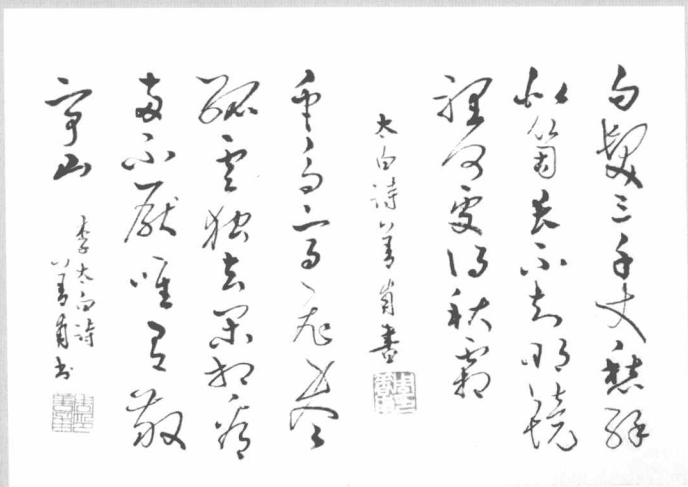 白髮三千丈緣愁
似箇長不知明鏡
裡何處得秋霜
太白詩 善肖書
眾鳥高飛盡
孤雲獨去閑相看
兩不厭唯有敬
亭山
李太白詩
善肖书